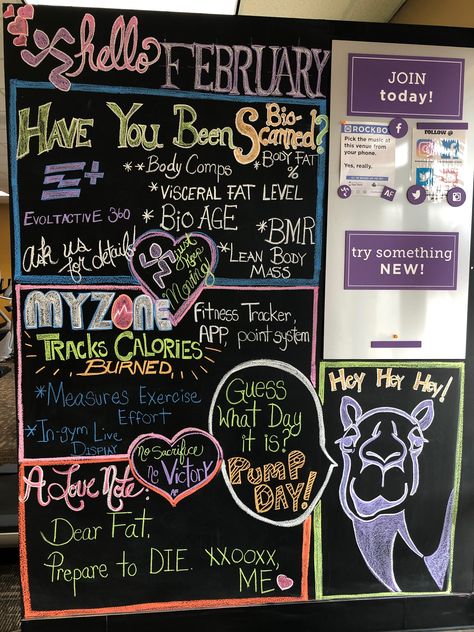 hello FEBRUARY
HAVE YOU BEEN BIO-SCANNED?
E+
EVOLTACTIVE 360
Ask us for details
**Body Comps
*BODY FAT %
*VISCERAL FAT LEVEL
*Bio AGE
*BMR
*LEAN BODY MASS
Just Keep Moving
MYZONE
TRACKS CALORIES BURNED,
FITNESS TRACKER, APP, point system
*MEASURES EXERCISE EFFORT
*IN-GYM LIVE DISPLAY
No Sacrifice
No Victory
AF
A Love Note:
Dear Fat,
Prepare to DIE. XXOOXX,
ME
GUESS WHAT DAY it is?
PUMP DAY!
HEY HEY HEY!
JOIN today!
ROCKBO
Pick the music at this venue from your phone.
Yes, really.
FOLLOW
AF
try something NEW!